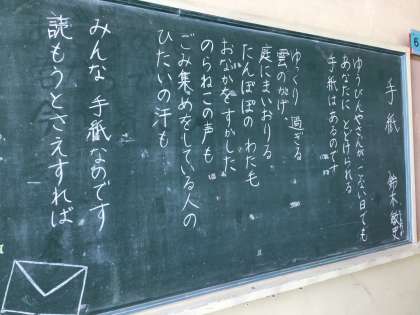 手紙
鈴木敏史
ゆうびんやさんが こない日でも
あなたに とどけられる
手紙はあるのです
ゆっくり 過ぎる
雲のかげ
庭にまいおりる
たんぽぽの わた毛
おなかをすかした
のらねこの声も
ごみ集めをしている人の
ひたいの汗も
みんな 手紙なのです
読もうとさえすれば